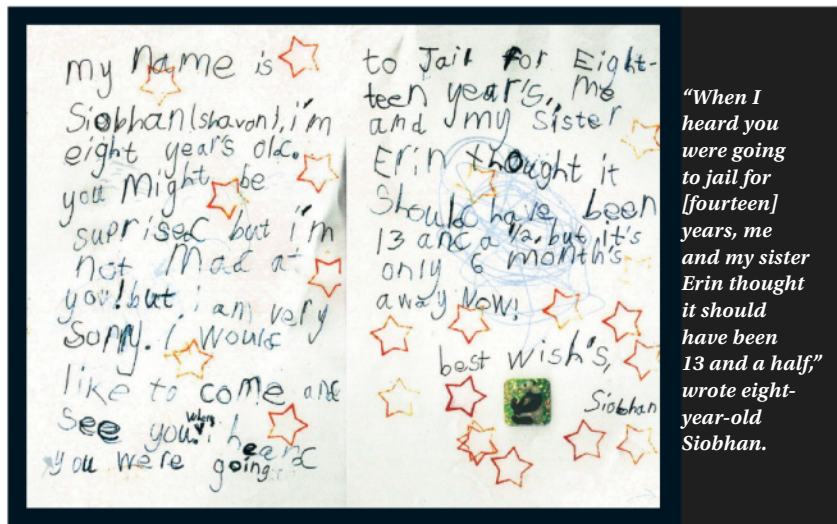 my name is
Siobhan (shavon), i'm
eight year's old.
you Might be
suprised but i'm
not Mad at
you! but i am very
Sorry. I would
like to come and
see you. when i heard
you were going
to Jail for Eight-
teen year's, me
and my sister
Erin thought it
Should have been
13 and a 1/2, but it's
only 6 month's
away Now!
best wish's,
Siobhan
“When I
heard you
were going
to jail for
[fourteen]
years, me
and my sister
Erin thought
it should
have been
13 and a half,”
wrote eight-
year-old
Siobhan.